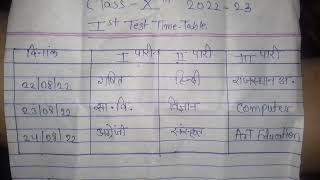 Class-X 2022-23
Ist Test Time-Table
दिनांक I पारी II-पारी III-पारी
22/08/22 गणित हिन्दी राजस्थान अ.
23/08/22 सा.वि. विज्ञान Computer
24/08/22 अंग्रेजी संस्कृत Art Education